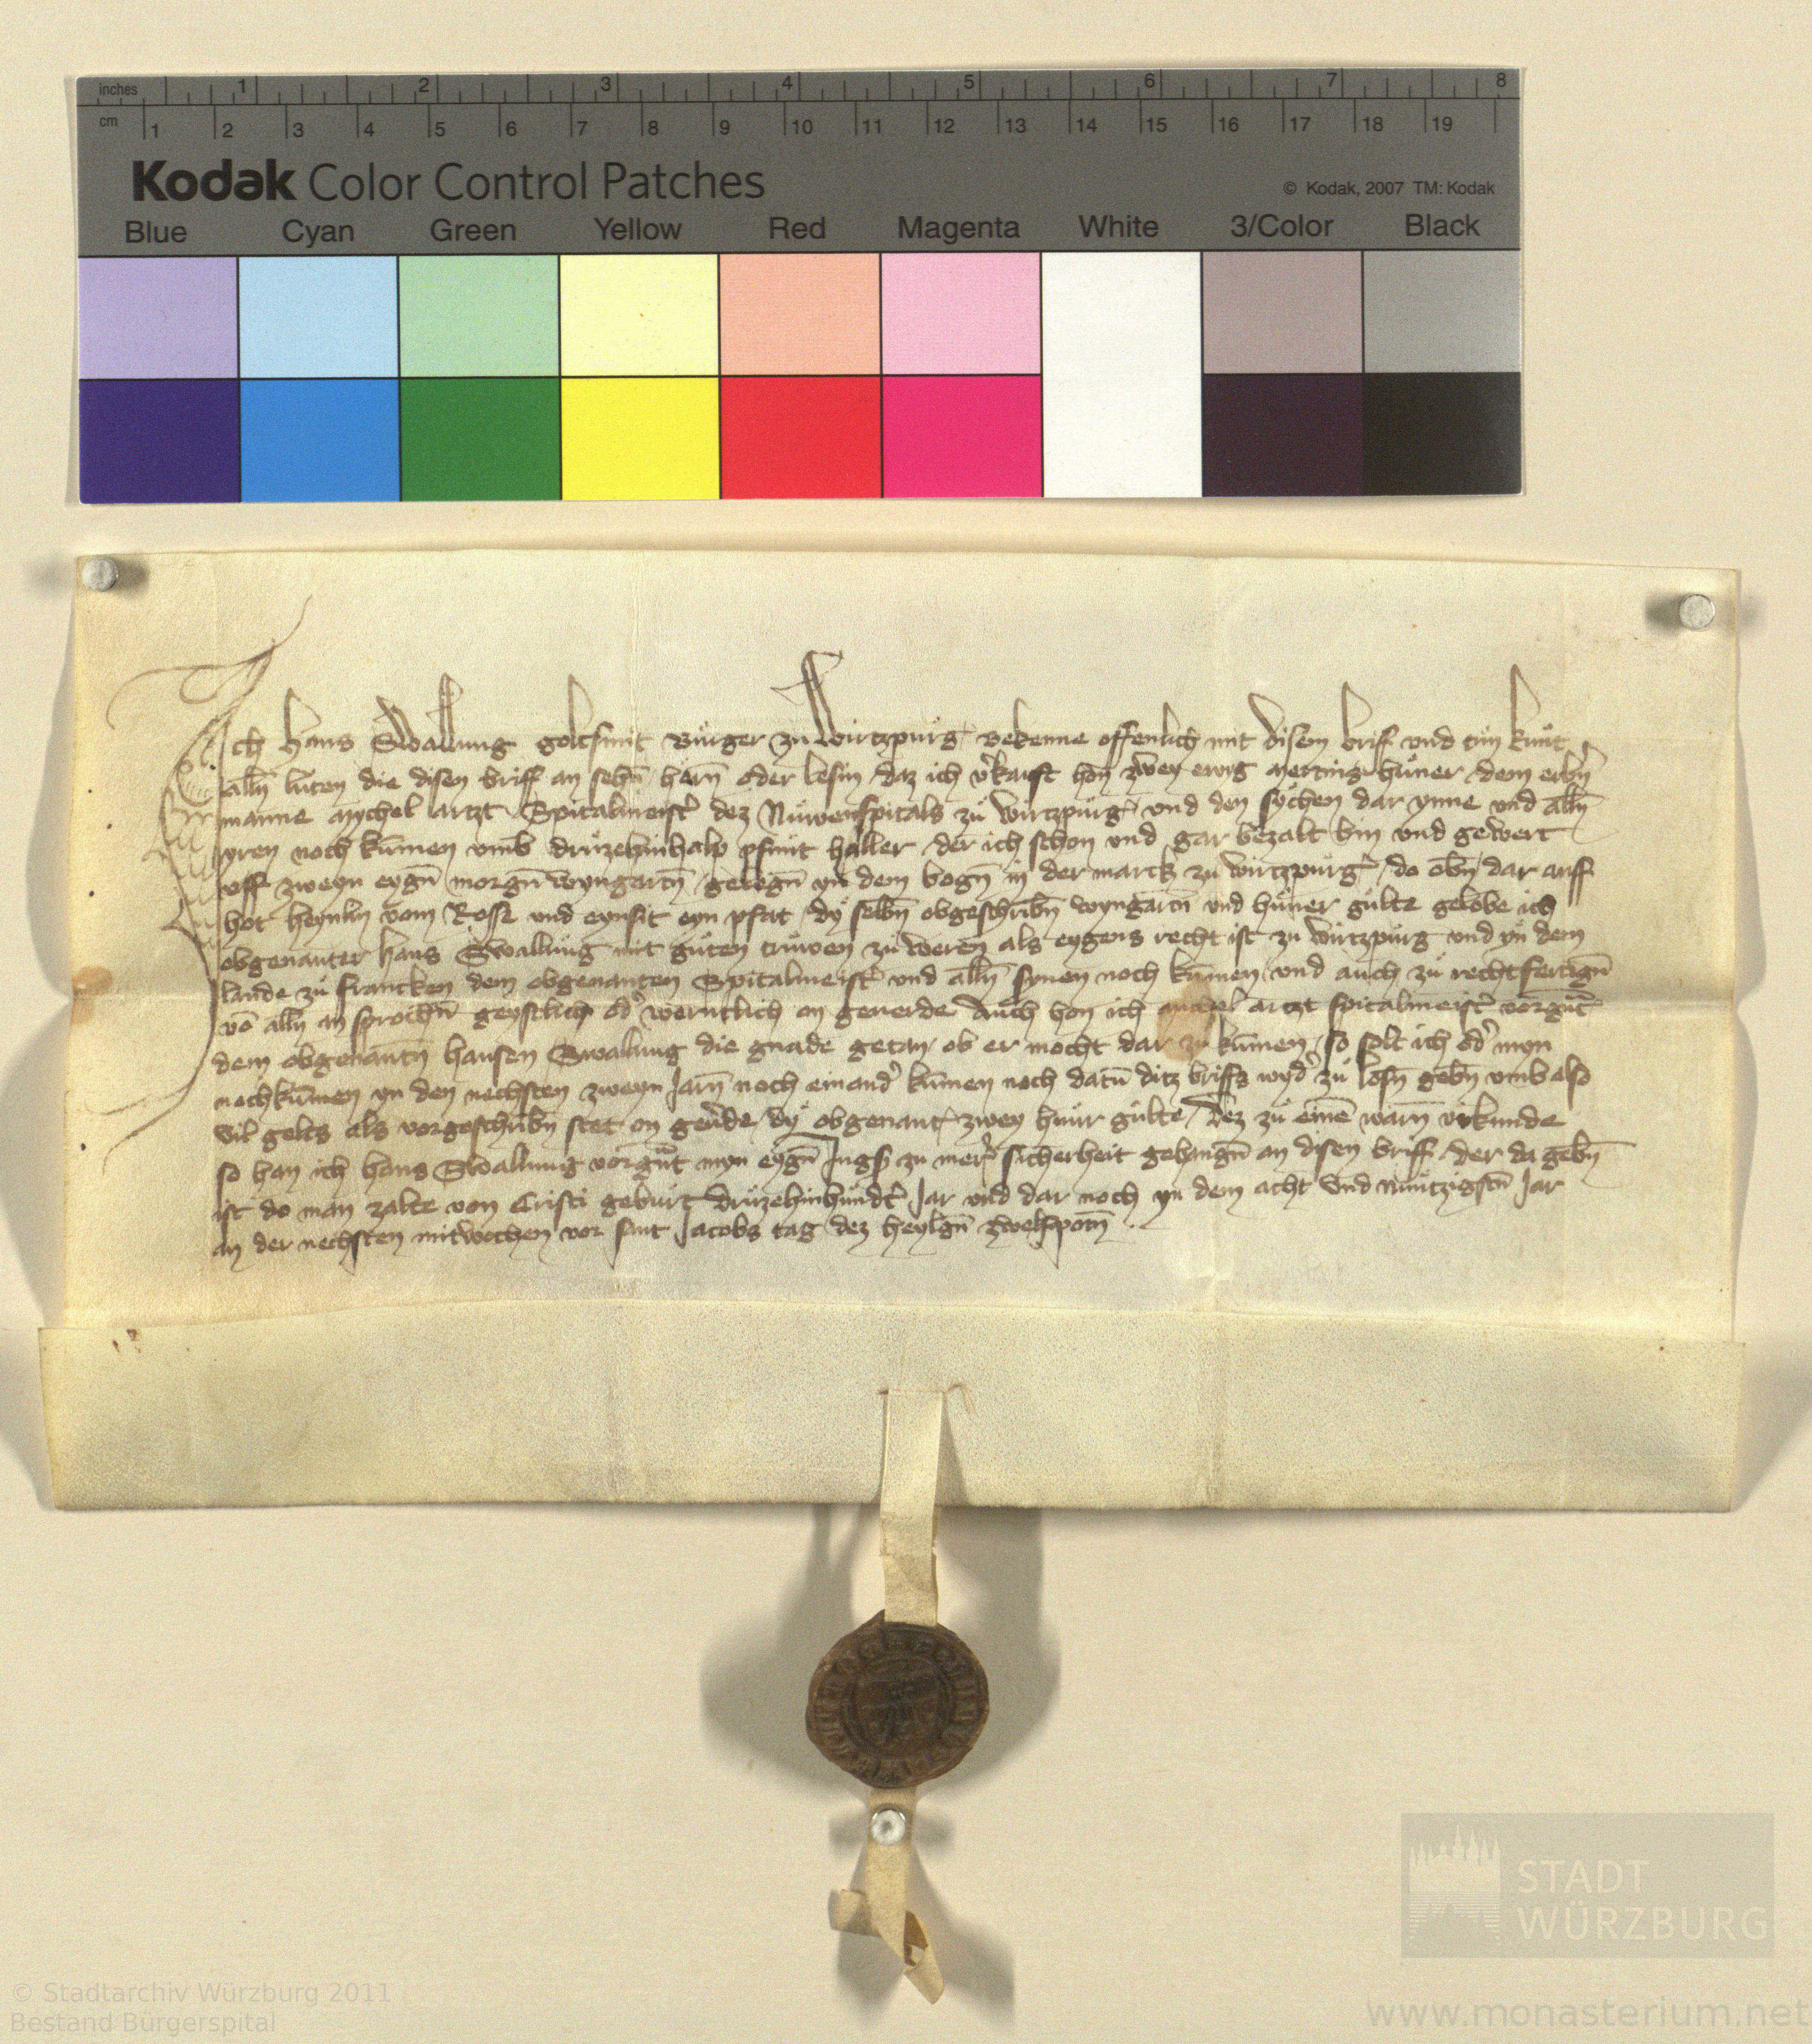 inches 1 2 3 4 5 6 7 8
cm 1 2 3 4 5 6 7 8 9 10 11 12 13 14 15 16 17 18 19
Kodak Color Control Patches
© Kodak, 2007 TM: Kodak
Blue Cyan Green Yellow Red Magenta White 3/Color Black
Ich hans Swallung goltsmit Burger zu Wirtzpurg bekenne offenlich mit disem briff vnd tun kunt
alln luten die disen briff an sehn horn oder lesin daz ich vkauft hon zwey ewig mertins huner dem erbn
manne mychel artzt Spitalmeist dez Nuwenspitals zu wirtzpurg vnd den sychen dar ynne vnd alln
yren noch kumen vmb druzehinhalp pfunt haller der ich schon vnd gar bezalt bin vnd gewert
vff zweyn eygn morgn wyngartn gelegn yn dem bogn in der marck zu wirtzpurg do obn dar auff
hot heynlin vom Rosse vnd eynsit eyn pfat dy selbn obgeschribn wyngartn vnd huner gulte gelobe ich
obgenanter hans Swallung mit guten truwen zu weren als eygens recht ist zu wirtzpurg vnd yn dem
lande zu francken dem obgenanten Spitalmeist vnd alln synen noch kumen vnd auch zu rechtfertign
vo alln an sprochn geystlich od werntlich on geuerde Auch hon ich mychel artzt spitalmeist vorgnt
dem obgenantn hansen Swalung die gnade getan ob er mocht dar zu kumen so solt ich od myn
nochkumen yn den nechsten zweyn Jarn noch einand kumen noch datu ditz briffs wyd zu losn gebn vmb also
vil gelts als vorgeschribn stet on geude dy obgenant zwey hunr gulte Dez zu eine warn vrkunde
so han ich hans Swallung vorgnt myn eygn Ings zu mer sicherheit gehangn an disen briff der da gebn
ist do man zalte von Cristi geburt druzehinhundt Jar vnd dar noch yn dem acht vnd nuntzigstn Jar
an der nechsten mitwochen vor sant Jacobs tag dez heylgn zwelfpotn
STADT
WÜRZBURG
© Stadtarchiv Würzburg 2011
Bestand Bürgerspital
www.monasterium.net